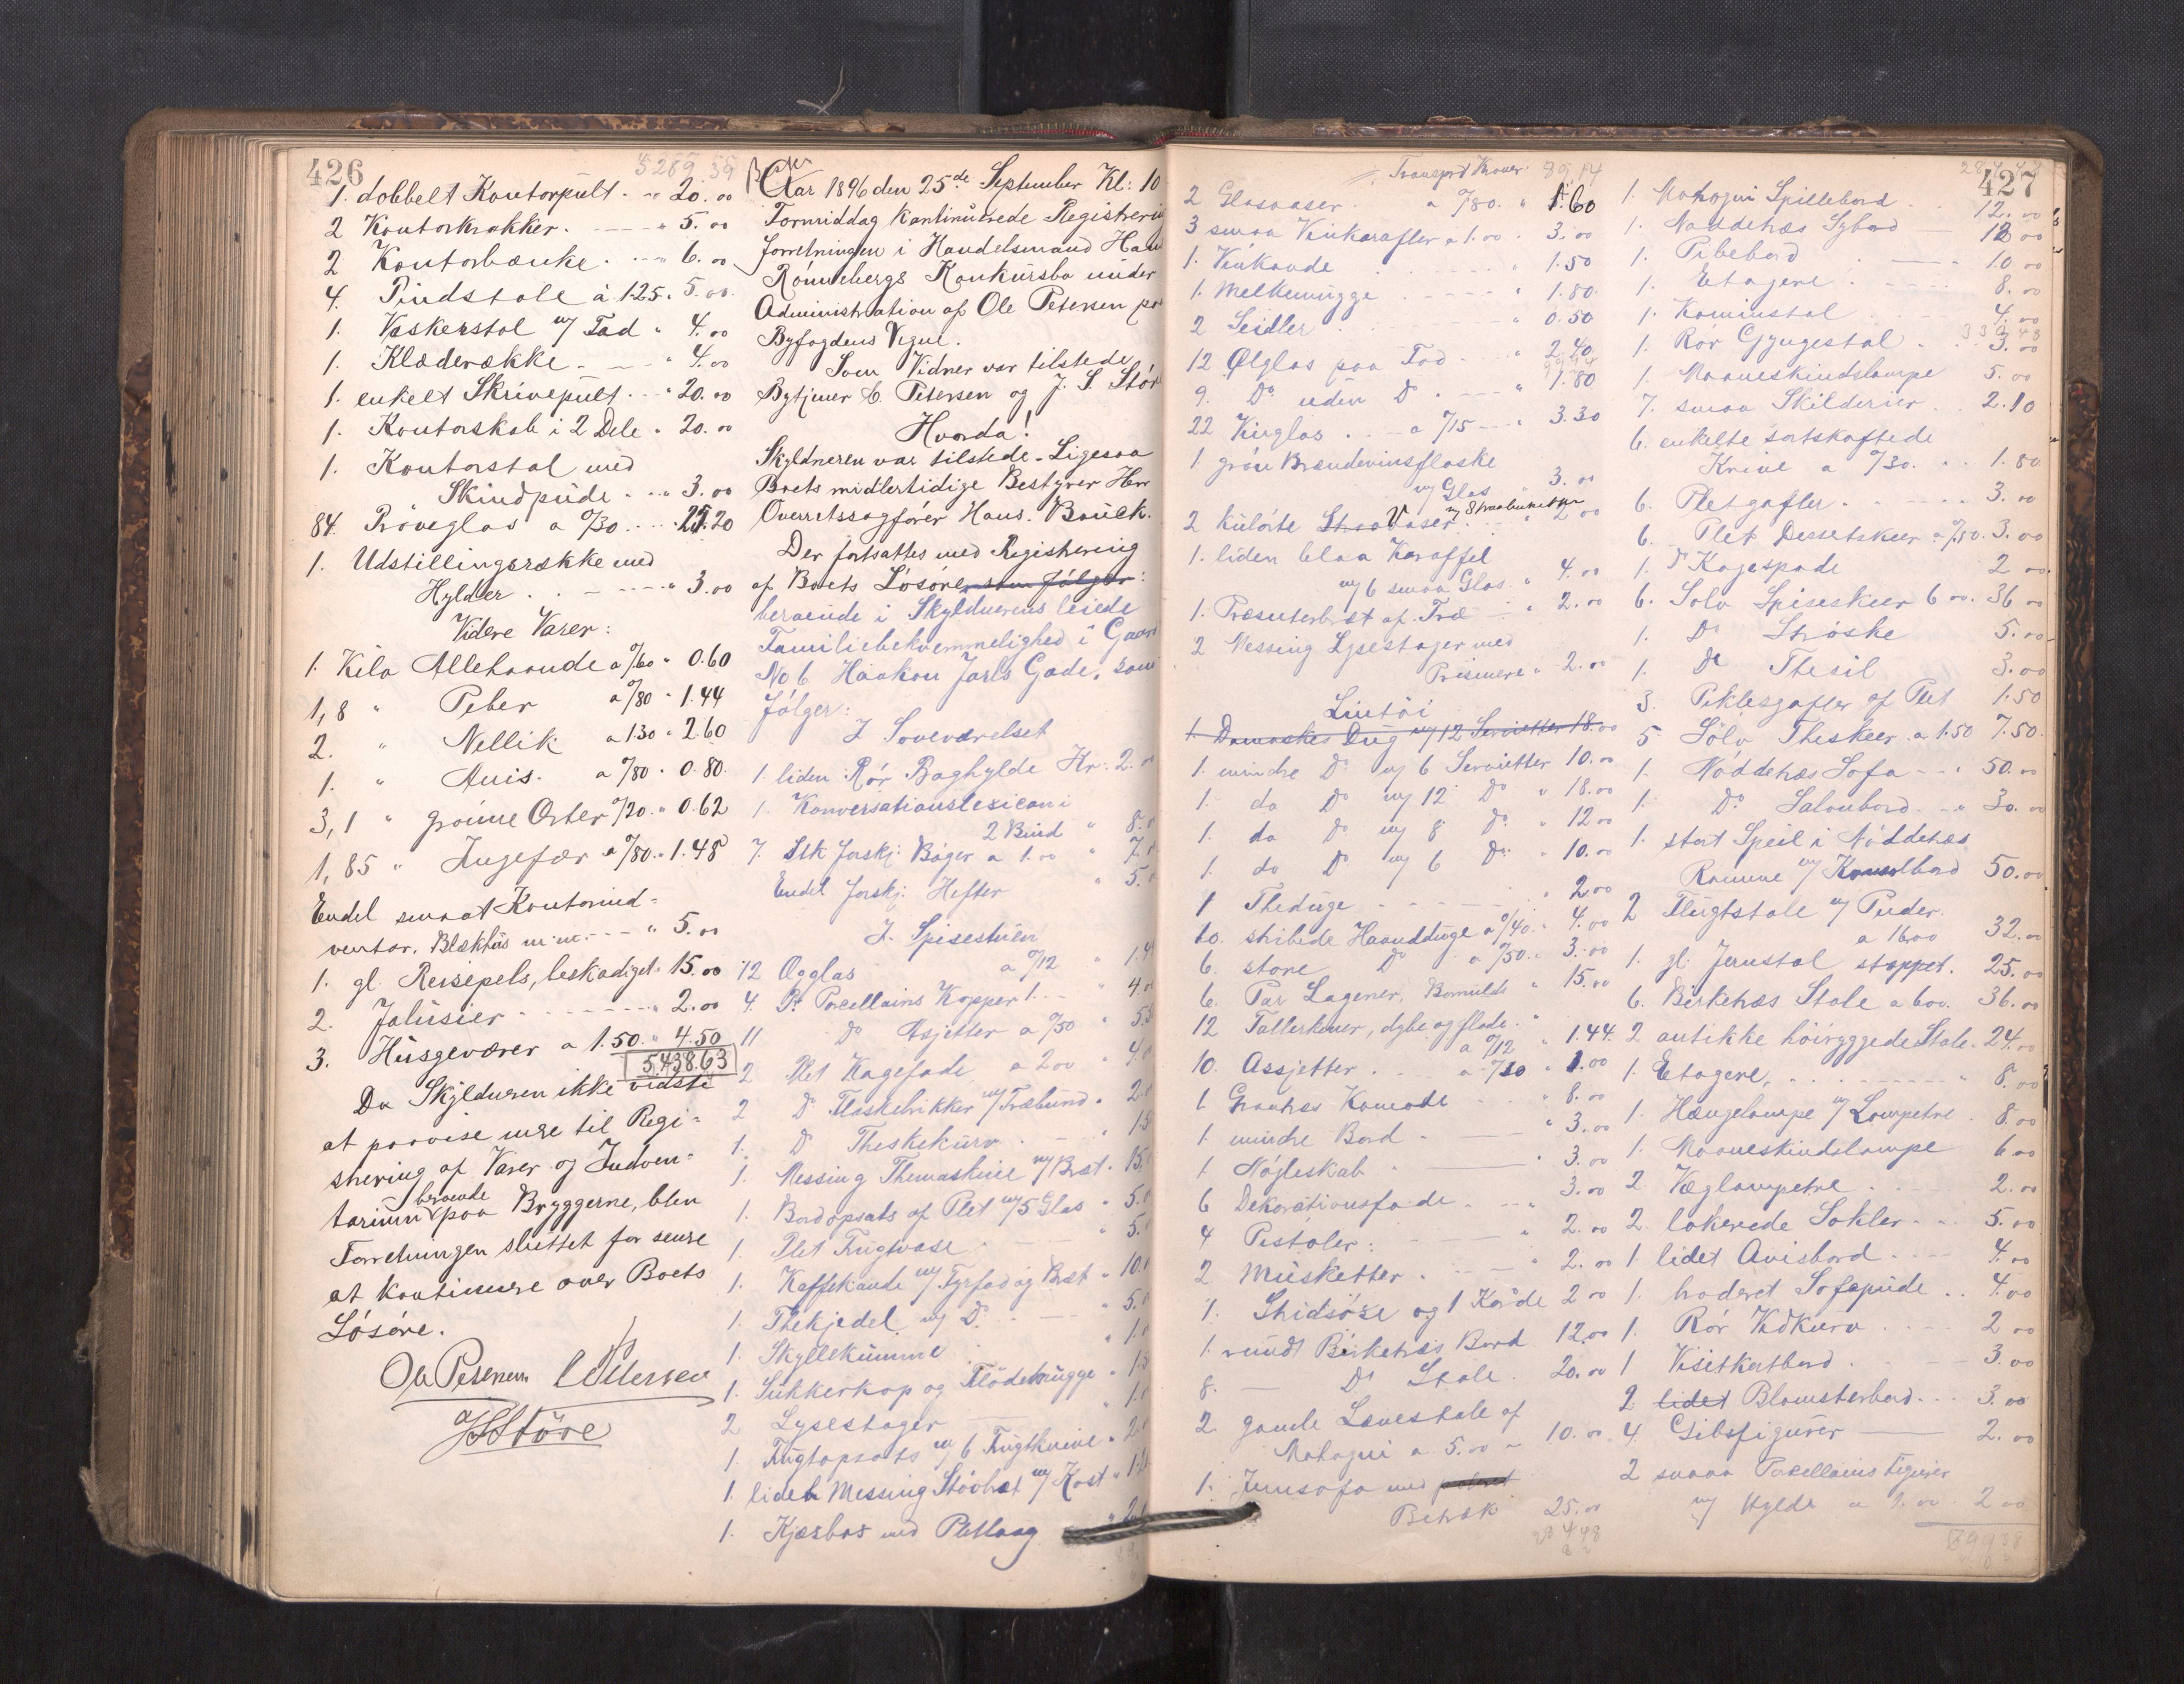 426
5289.59
1. dobbelt Kontorpult. - " 20.00
2 Kontorkrakker. - - - " 5.00
2 Kontorbænke. - - " 6.00
4. Pindstole à 1.25. " 5.00.
1. Vaskerstol m/ Fad " 4.00
1. Klæderække. - - " 4.00
1. enkelt Skrivepult. - " 20.00
1. Kontorskab i 2 Dele " 20.00
1. Kontorstol med
Skindpude - - " 3.00
84. Prøveglas a 0/30. - - 25.20
1. Udstillingsrække med
Hylder - - - - " 3.00
Videre Varer:
1. Kilo Allehaande a 0/60 " 0.60
1,8 " Peber a 0/80 " 1.44
2. " Nellik a 1.30 " 2.60
1. " Anis. a 0/80 " 0.80
3,1 " grønne Erter 0/20. " 0.62
1,85 " Ingefær a 0/80. " 1.48
Endel smaat Kontorind-
ventar, Blækhus m.m. - - " 5.00
1. gl. Reisepels, beskadiget " 15.00
2. Jalusier - - - - - " 2.00
3. Husgeværer a 1.50. " 4.50
5,438.63
Da Skyldneren ikke vidste
at paavise mere til Regi-
strering af Varer og Inven-
tarium beroende paa Bryggerne, blev
Forretningen sluttet for senere
at kontinuere over Boets
Løsøre.
Ole Petersen C Petersen
J S Støre
Aar 1896 den 25de September Kl: 10
Formiddag kontinuerede Registrering
forretningen i Handelsmand Hans
Rønnebergs Konkursbo under
Administration af Ole Petersen paa
Byfogdens Vegne.
Som Vidner var tilstede
Bytjener C. Petersen og J. S. Støre
Hvorda!
Skyldneren var tilstede. Ligesaa
Boets midlertidige Bestyrer Herr
Overretssagfører Hans. Bauck.
Der fortsattes med Registrering
af Boets Løsøre, som følger:
beroende i Skyldnerens leiede
Familiebekvemmelighed i Gaard
No 6 Haakon Jarls Gade, som
følger:
I Soveværelset
1. liden Rør Boghylde Kr. 2.
1. Konversationslexicon i
2 Bind " 8.
7. Stk forskj. Bøger a 1.00 " 7.
Endel forskj. Hefter " 5.
I. Spisestuen
12 Ægglas a 0/12 " 1.4
4. Pr Porcellains Kopper 1. - " 4.00
11 Do Asjetter a 0/50 " 5.5
2 Plet Kagefade a 2.00 " 4.0
2 Do Flaskebrikker m/ Træbund " 2.
1. Do Theskekurv. - " 1.5
1. Messing Themaskine m/ Bræt " 15.
1. Bordopsats af Plet m/ 5 Glas " 5.
1. Plet Frugtvase " 5.
1. Kaffekande m/ Fyrfad og Bræt " 10.
1. Thekjedel m/ Do. - " 5.
1. Skyllekumme " 1.
1. Sukkerkop og Flødemugge " 1.5
2 Lysestager " 1.
1. Frugtopsats m/ 6 Frugtknive " 2.
1. liden Messing Støvbræt m/ Kost " 1.2
1. Kjæsbos med Pletlaag " 2.
Transport Kroner 89.14
2 Glasvaser. a 0/80. " 1.60
3 smaa Vinkarafler a 1.00 " 3.00
1. Vinkande " 1.50
1. Melkemugge " 1.80.
2 Seidler " 0.50
12 Ølglas paa Fod " 2.40
9. Do uden Do " 1.80
22 Vinglas a 0/15 " 3.30
1 grøn Brændevinsflaske
m/ Glas " 3.00
2 kulørte Straavaser m/ Straabuketter " 2.00
1. liden blaa Karaffel
m/ 6 smaa Glas " 4.00
1. Præsenterbræt af Træ " 2.00
2 Messing Lysestager med
Prismere " 2.00
Lintøi
1. Damaskes Dug m/ 12 Servietter 18.00
1. mindre Do m/ 6 Servietter 10.00
1. do Do m/ 12 Do " 18.00
1. do Do m/ 8 Do " 12.00
1. do Do m/ 6 Do " 10.00
1 Theduge " 2.00
10. stribede Haandduge a 0/40. " 4.00
6. store Do a 0/50. " 3.00
6. Par Lagener, Bomulds " 15.00
12 Tallerkener, dybe og flade.
a 0/12 " 1.44.
10. Assjetter. a 0/10 " 1.00
1 Grantræs Komode " 8.00
1. mindre Bord " 3.00
1 Nøgleskab " 3.00
6 Dekorationsfade " 3.00
4 Pistoler " 2.00
2 Musketter " 2.00
1. Stridsøxe og 1 Kaarde 2.00
1. rundt Birketræs Bord 12.00
8. - Do Stole. 20.00
2. gamle Lænestole af
Mahogni a 5.00 " 10.00
1. Jernsofa med
Betræk 25.00
427
1. Mahogni Spillebord 12.00
1. Nøddetræs Sybord 12.00
1. Pibebord 10.00
1. Etagere 8.00
1. Kaminstol 4.00
1. Rør Gyngestol 3.00
1. Maaneskindslampe 5.00
7. smaa Skilderier 2.10
6. enkelte sortskaftede
Knive a 0/30. 1.80.
6. Pletgafler 3.00
6. Plet Dessertskeer a 0/50. 3.00
1. Do Kagespade 2.00
6. Sølv Spiseskeer 6.00. 36.00
1. Do Strøske 5.00
1. Do Thesil 3.00
3. Piklesgafler af Plet 1.50
5 Sølv Theskeer a 1.50 7.50.
1. Nøddetræs Sofa " 50.00
1. Do Salonbord " 30.00
1. stort Speil i Nøddetræs
Ramme m/ Konsolbord 50.00
2 Flugtstole m/ Puder.
a 16.00 32.00
1. gl. Jernstol stoppet. 25.00
6. Birketræs Stole a 6.00. 36.00
2 antikke høirygggede Stole. 24.00
1. Etagere, " 8.00
1. Hængelampe m/ Lampetre 8.00
1. Maaneskindslampe 6.00
2. Væglampetre 2.00
2. lakerede Sokler 5.00
1 lidet Avisbord 4.00
1. broderet Sofapude 4.00
1. Rør Vedkurv 2.00
1 Visitkortbord 3.00
2 lidet Blomsterbord 3.00
4. Gibsfigurer 2.00
2 smaa Porcellains Figurer
m/ Hylde a 1.00 2.00